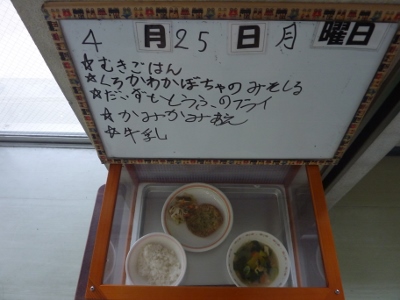 4月25日月曜日
☆むぎごはん
☆くろかわかぼちゃのみそしる
☆だいずととうふのフライ
☆かみかみあえ
☆牛乳